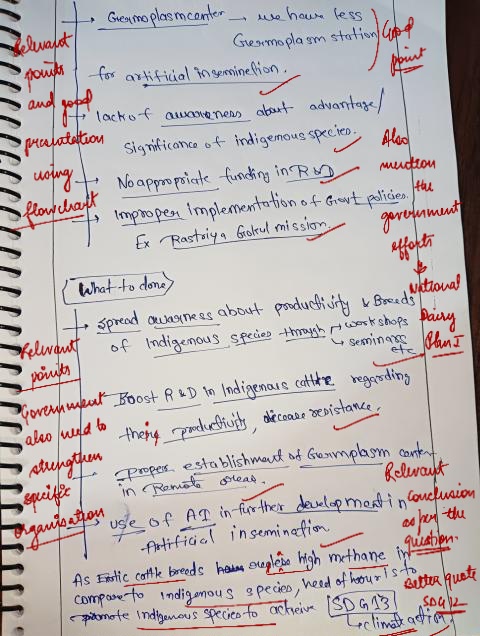 Germoplasmcenter → we have less
Germoplasm station
for artificial inseminetion.
Good
point
Relevant
points
and good
presentation
using
flowchart
→ lack of awareness about advantage/
significance of indigenous species.
→ No appropriate funding in R&D
→ Improper implementation of Govt policies.
Ex Rastriya Gokul mission.
Also
mention
the
government
efforts
National
Dairy
Plan I
What to done
→ Spread awarness about productivity & Breeds
of Indigenous species through
→ workshops
→ seminars
etc
Relevant
points
Government
also need to
strengthen
specific
organisation
→ Boost R&D in Indigenous cattle regarding
their productivity, dicease resistance.
→ Proper establishment of Germplasm center
in Remote areas.
→ use of AI in further development in
Artificial insemination
Relevant
conclusion
as per the
question.
As Exotic cattle breeds high methane in
compare to Indigenous species, need of hour is to
promote Indigenous species to achieve SDG13
→ climate action.
Better quote
SDG 12